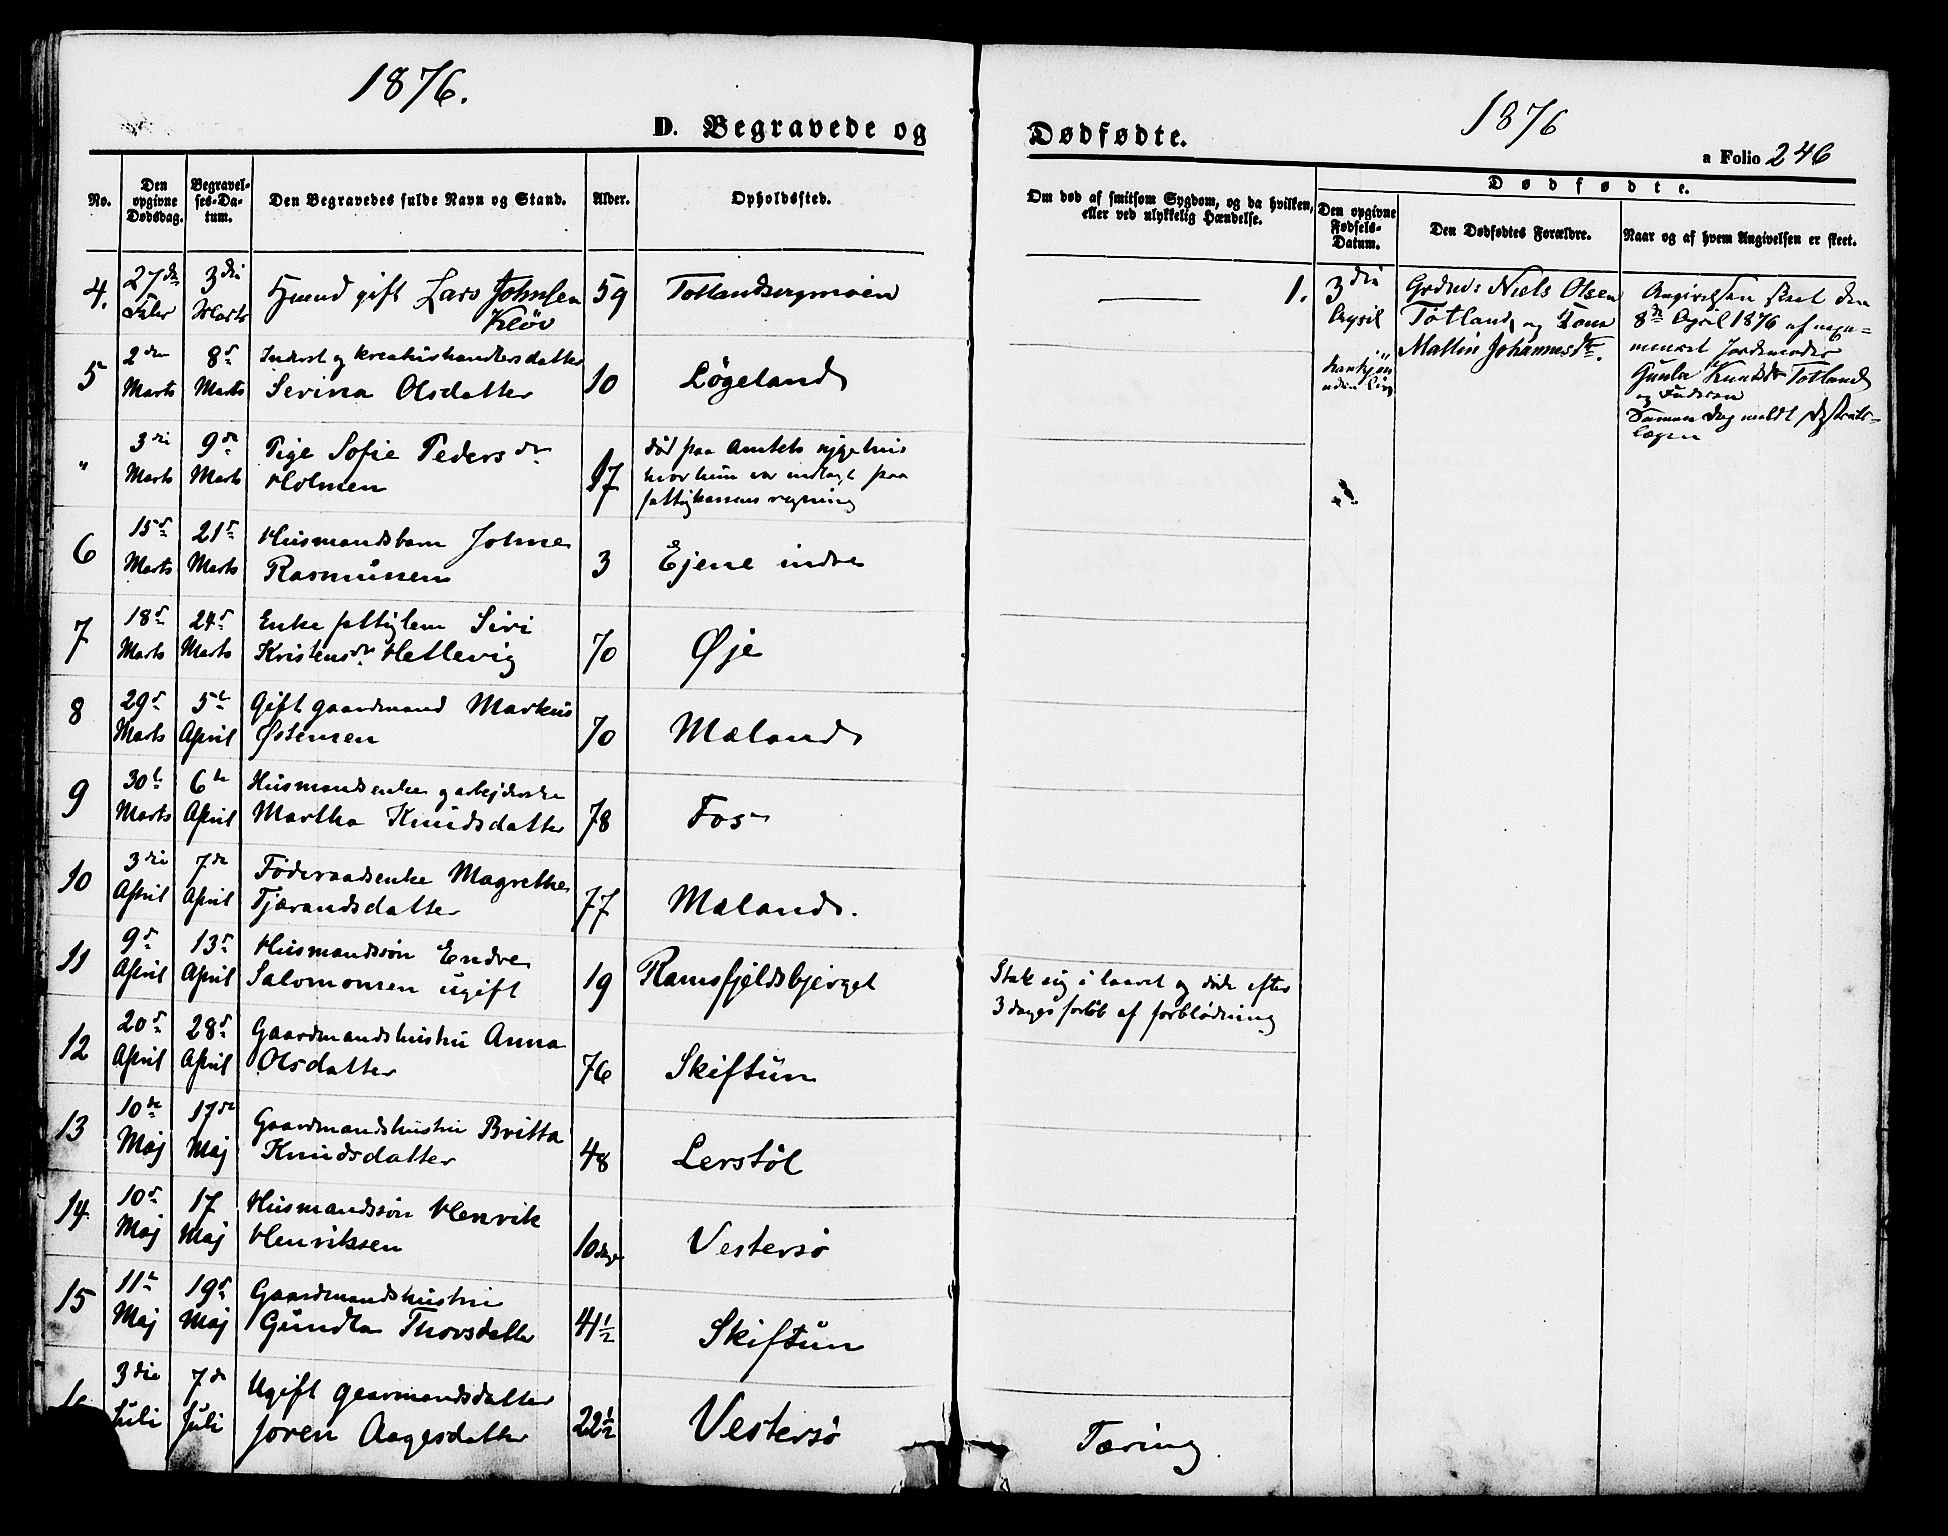 1876.
D. Begravede og
No.
Den opgivne Dødsdag.
Begravelses-Datum.
Den Begravedes fulde Navn og Stand.
Alder.
Opholdssted.
4. 27de Febr 3die Marts gift Lars Johnsen 59
Kløv
5 2den Marts 8de Marts Inderst og kreaturhandlersdatter
Serina Olsdatter 10 Løgeland
" 3die Marts 9de Marts Pige Sofie Pedersdr
Holmen 17
død paa Amtets sygehus
hvor hun var indlagt paa
fattigkassens regning
6 15de Marts 21de Marts Husmandsbarn Johne
Rasmussen 3 Ejene indre
7 18de Marts 24de Marts Enke fattiglem Siri
Kristensdr Hetlevig 70 Øje
8 29de Marts 5te April Gift gaardmand Markus
Østensen 70 Mæland
9 30te Marts 6te April Husmandsenke og arbejderske
Martha Knudsdatter 78 Fos
10 3die April 7de April Føderaadsenke Magrethe
Tjærandsdatter 77 Mæland.
11 9de April 13de April Husmandssøn Endre
Salomonsen ugift 19 Ramsfjeldsbjerget
12 20de April 28de April Gaardmandshustru Anna
Olsdatter 76 Skiftun
13 10de Maj 17de Maj Gaardmandshustru Britta
Knudsdatter 48 Lerstøl
14 10de Maj 17 Maj Husmandssøn Henrik
Henriksen 10 dage Vestersø
15 11te Maj 19de Maj Gaardmandshustru
Gundla Thorsdatter 41½ Skiftun
3die Juli 7de Juli Ugift gaarmandsdatter
Joren Aagesdatter 22½ Vestersø
1876
Dødfødte.
a Folio 246
Om død af smitsom Sygdom, og da hvilken,
eller ved ulykkelig Hændelse.
Dødfødte.
Den opgivne Fødsels-Datum.
Den Dødfødtes Forældre.
Naar og af hvem Angivelsen er skeet.
1. 3die April
Niels Olsen
Totland og Tona
Mallin Johannesdtr.
uden Liv
Angivelsen skeet den
8de April 1876 af
Jordemoder
Gunla Knutsdr Totland
og Faderen
Samme Dag meldt Distrikts-
lægen
Stak sig i laaret og døde efter
3 dages forløb af forblødning
Tæring.